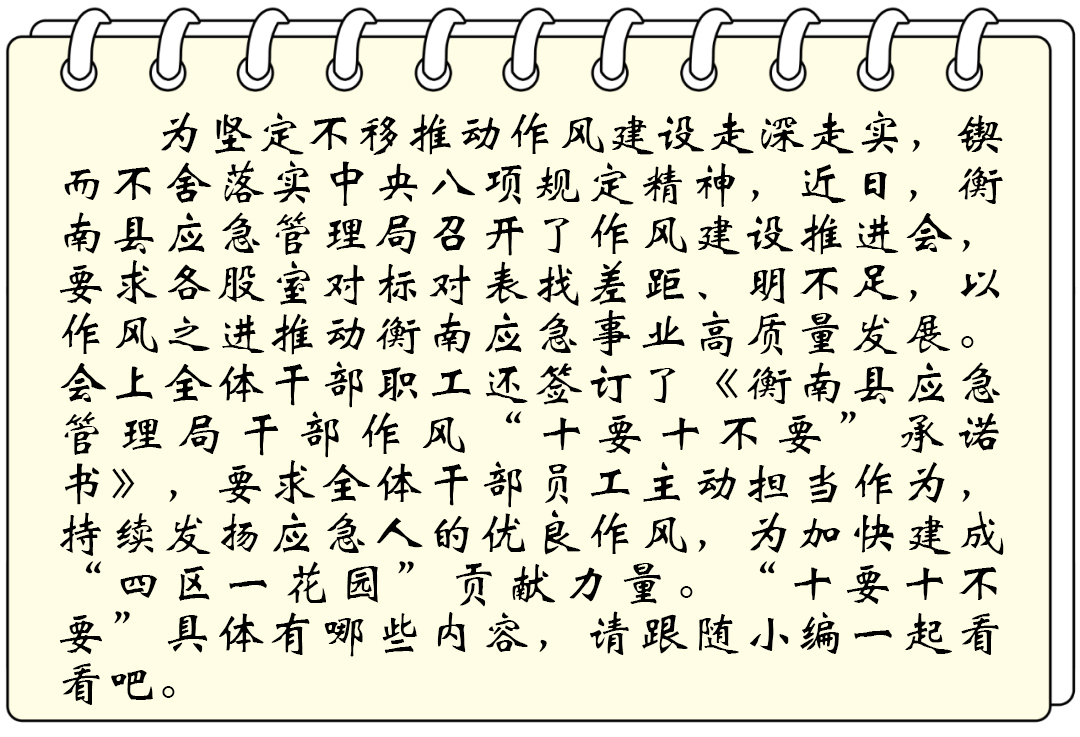 为坚定不移推动作风建设走深走实，锲
而不舍落实中央八项规定精神，近日，衡
南县应急管理局召开了作风建设推进会，
要求各股室对标对表找差距、明不足，以
作风之进推动衡南应急事业高质量发展。
会上全体干部职工还签订了《衡南县应急
管理局干部作风“十要十不要”承诺
书》，要求全体干部员工主动担当作为，
持续发扬应急人的优良作风，为加快建成
“四区一花园”贡献力量。“十要十不
要”具体有哪些内容，请跟随小编一起看
看吧。